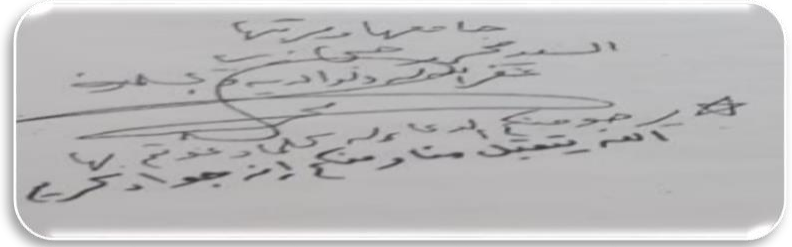 جامعها ومرتبها
السيد محمد حسني
غفر الله له ولوالديه
يرجو منكم الدعاء له كلما دعوتم بها
الله يتقبل منا ومنكم إنه جواد كريم